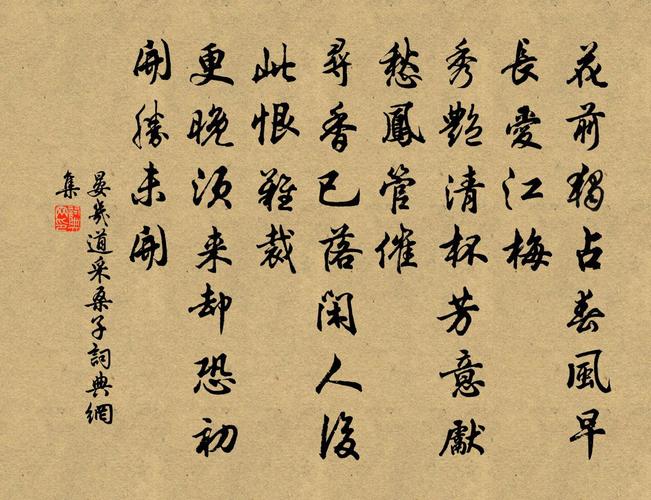 花前獨占春風早
長愛江梅
秀艷清杯芳意獻
愁鳳管催
尋香已落閑人後
此恨難裁
更晚須来却恐初
開勝未開
晏幾道采桑子詞典網
集